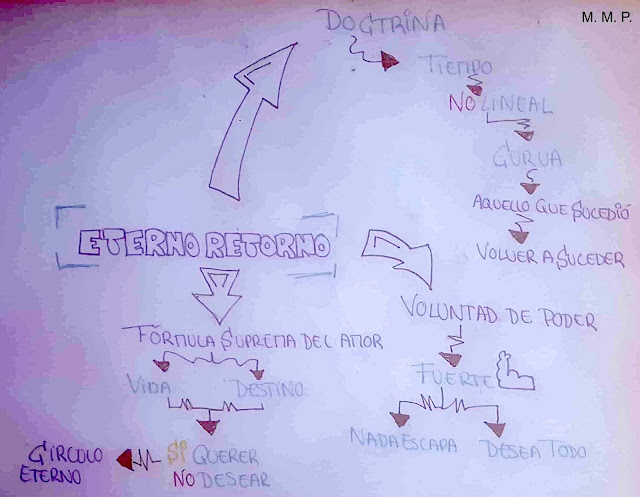 M. M. P.
DOCTRINA
TIEMPO
NO LINEAL
CURVA
AQUELLO QUE SUCEDIÓ
VOLVER A SUCEDER
ETERNO RETORNO
VOLUNTAD DE PODER
FUERTE
NADA ESCAPA
DESEA TODO
FÓRMULA SUPREMA DEL AMOR
VIDA
DESTINO
SI QUERER
NO DESEAR
CÍRCULO
ETERNO